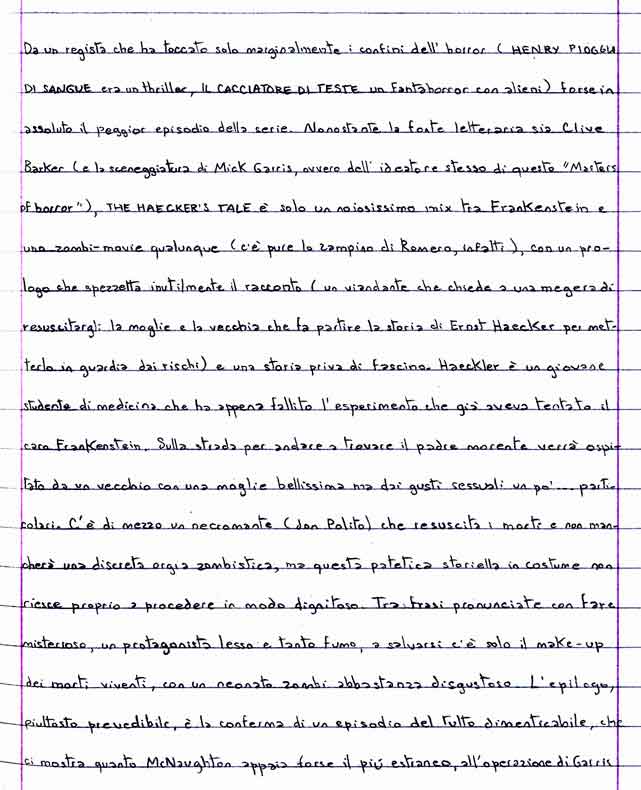 Da un regista che ha toccato solo marginalmente i confini dell'horror (HENRY PIOGGIA
DI SANGUE era un thriller, IL CACCIATORE DI TESTE un fantahorror con alieni) forse in
assoluto il peggior episodio della serie. Nonostante la fonte letteraria sia Clive
Barker (e la sceneggiatura di Mick Garris, ovvero dell'ideatore stesso di questo "Masters
of horror"), THE HAECKER'S TALE è solo un noiosissimo mix tra Frankenstein e
uno zombi-movie qualunque (c'è pure lo zampino di Romero, infatti), con un pro-
logo che spezzetta inutilmente il racconto (un viandante che chiede a una megera di
resuscitargli la moglie e la vecchia che fa partire la storia di Ernst Haecker per met-
terlo in guardia dai rischi) e una storia priva di fascino. Haeckler è un giovane
studente di medicina che ha appena fallito l'esperimento che già aveva tentato il
caro Frankenstein. Sulla strada per andare a trovare il padre morente verrà ospi-
tato da un vecchio con una moglie bellissima ma dai gusti sessuali un po'... parti-
colari. C'è di mezzo un necromante (Jon Polito) che resuscita i morti e non man-
cherà una discreta orgia zombistica, ma questa patetica storiella in costume non
riesce proprio a procedere in modo dignitoso. Tra frasi pronunciate con fare
misterioso, un protagonista lesso e tanto fumo, a salvarsi c'è solo il make-up
dei morti viventi, con un neonato zombi abbastanza disgustoso. L'epilogo,
piuttosto prevedibile, è la conferma di un episodio del tutto dimenticabile, che
ci mostra quanto McNaughton appaia forse il più estraneo, all'operazione di Garris